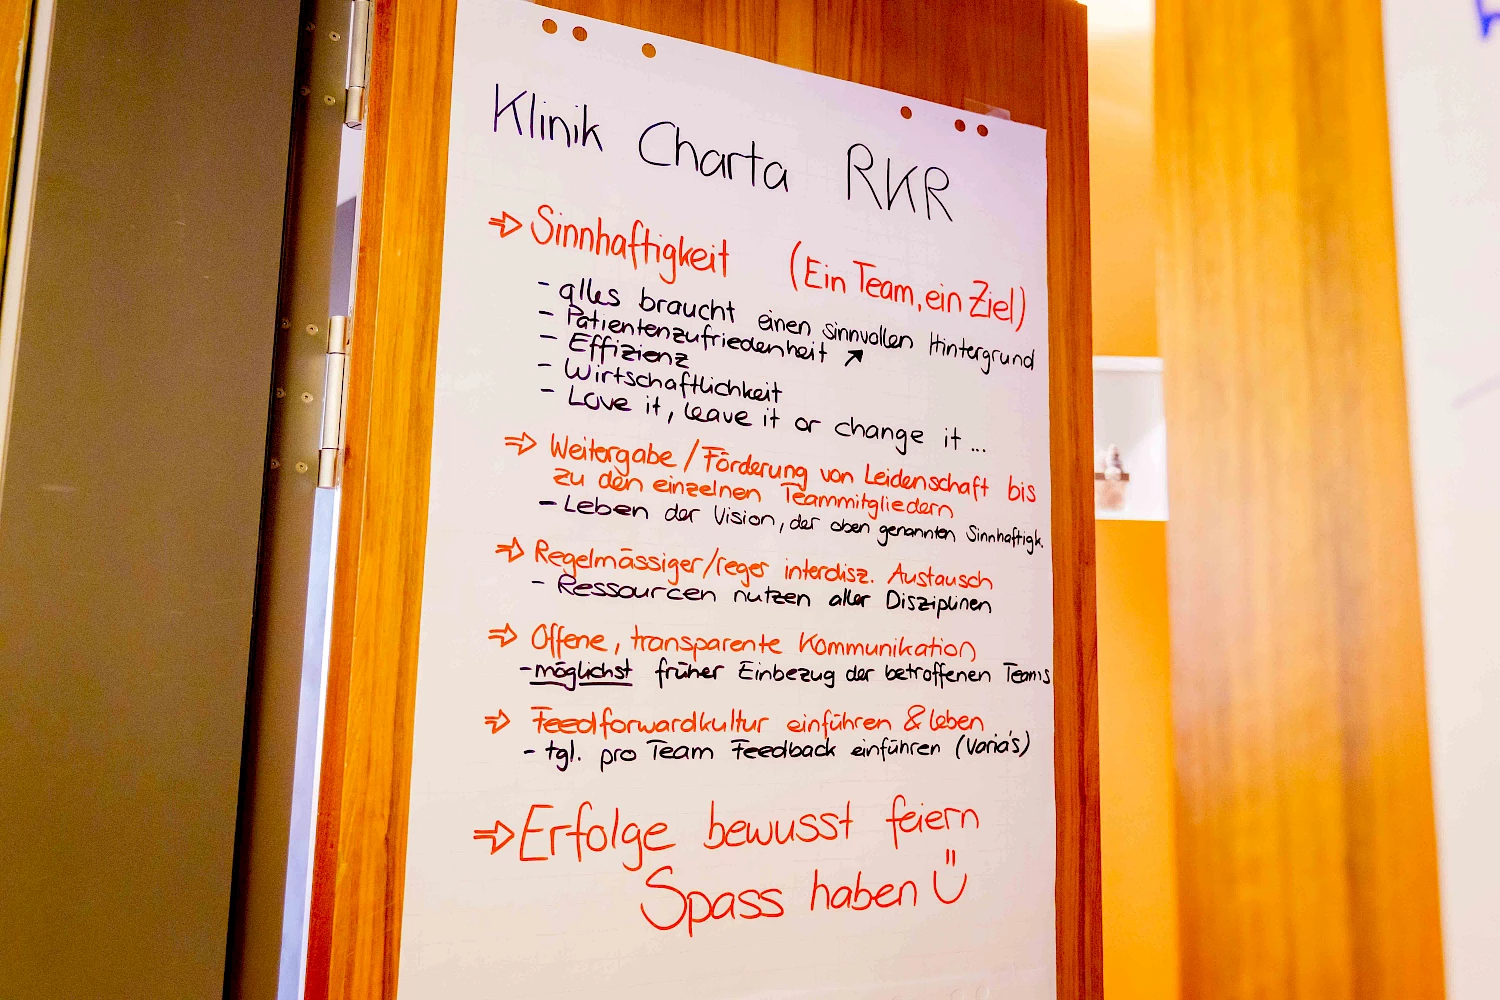 Klinik Charta RKR
⇒ Sinnhaftigkeit (Ein Team, ein Ziel)
- alles braucht einen sinnvollen Hintergrund
- Patientenzufriedenheit ↗
- Effizienz
- Wirtschaftlichkeit
- Love it, leave it or change it ...
⇒ Weitergabe / Förderung von Leidenschaft bis
zu den einzelnen Teammitgliedern
- Leben der Vision, der oben genannten Sinnhaftigk.
⇒ Regelmässiger/reger interdisz. Austausch
- Ressourcen nutzen aller Disziplinen
⇒ Offene, transparente Kommunikation
- möglichst früher Einbezug der betroffenen Teams
⇒ Feedforwardkultur einführen & leben
- tgl. pro Team Feedback einführen (Varia's)
⇒ Erfolge bewusst feiern
Spass haben Ü